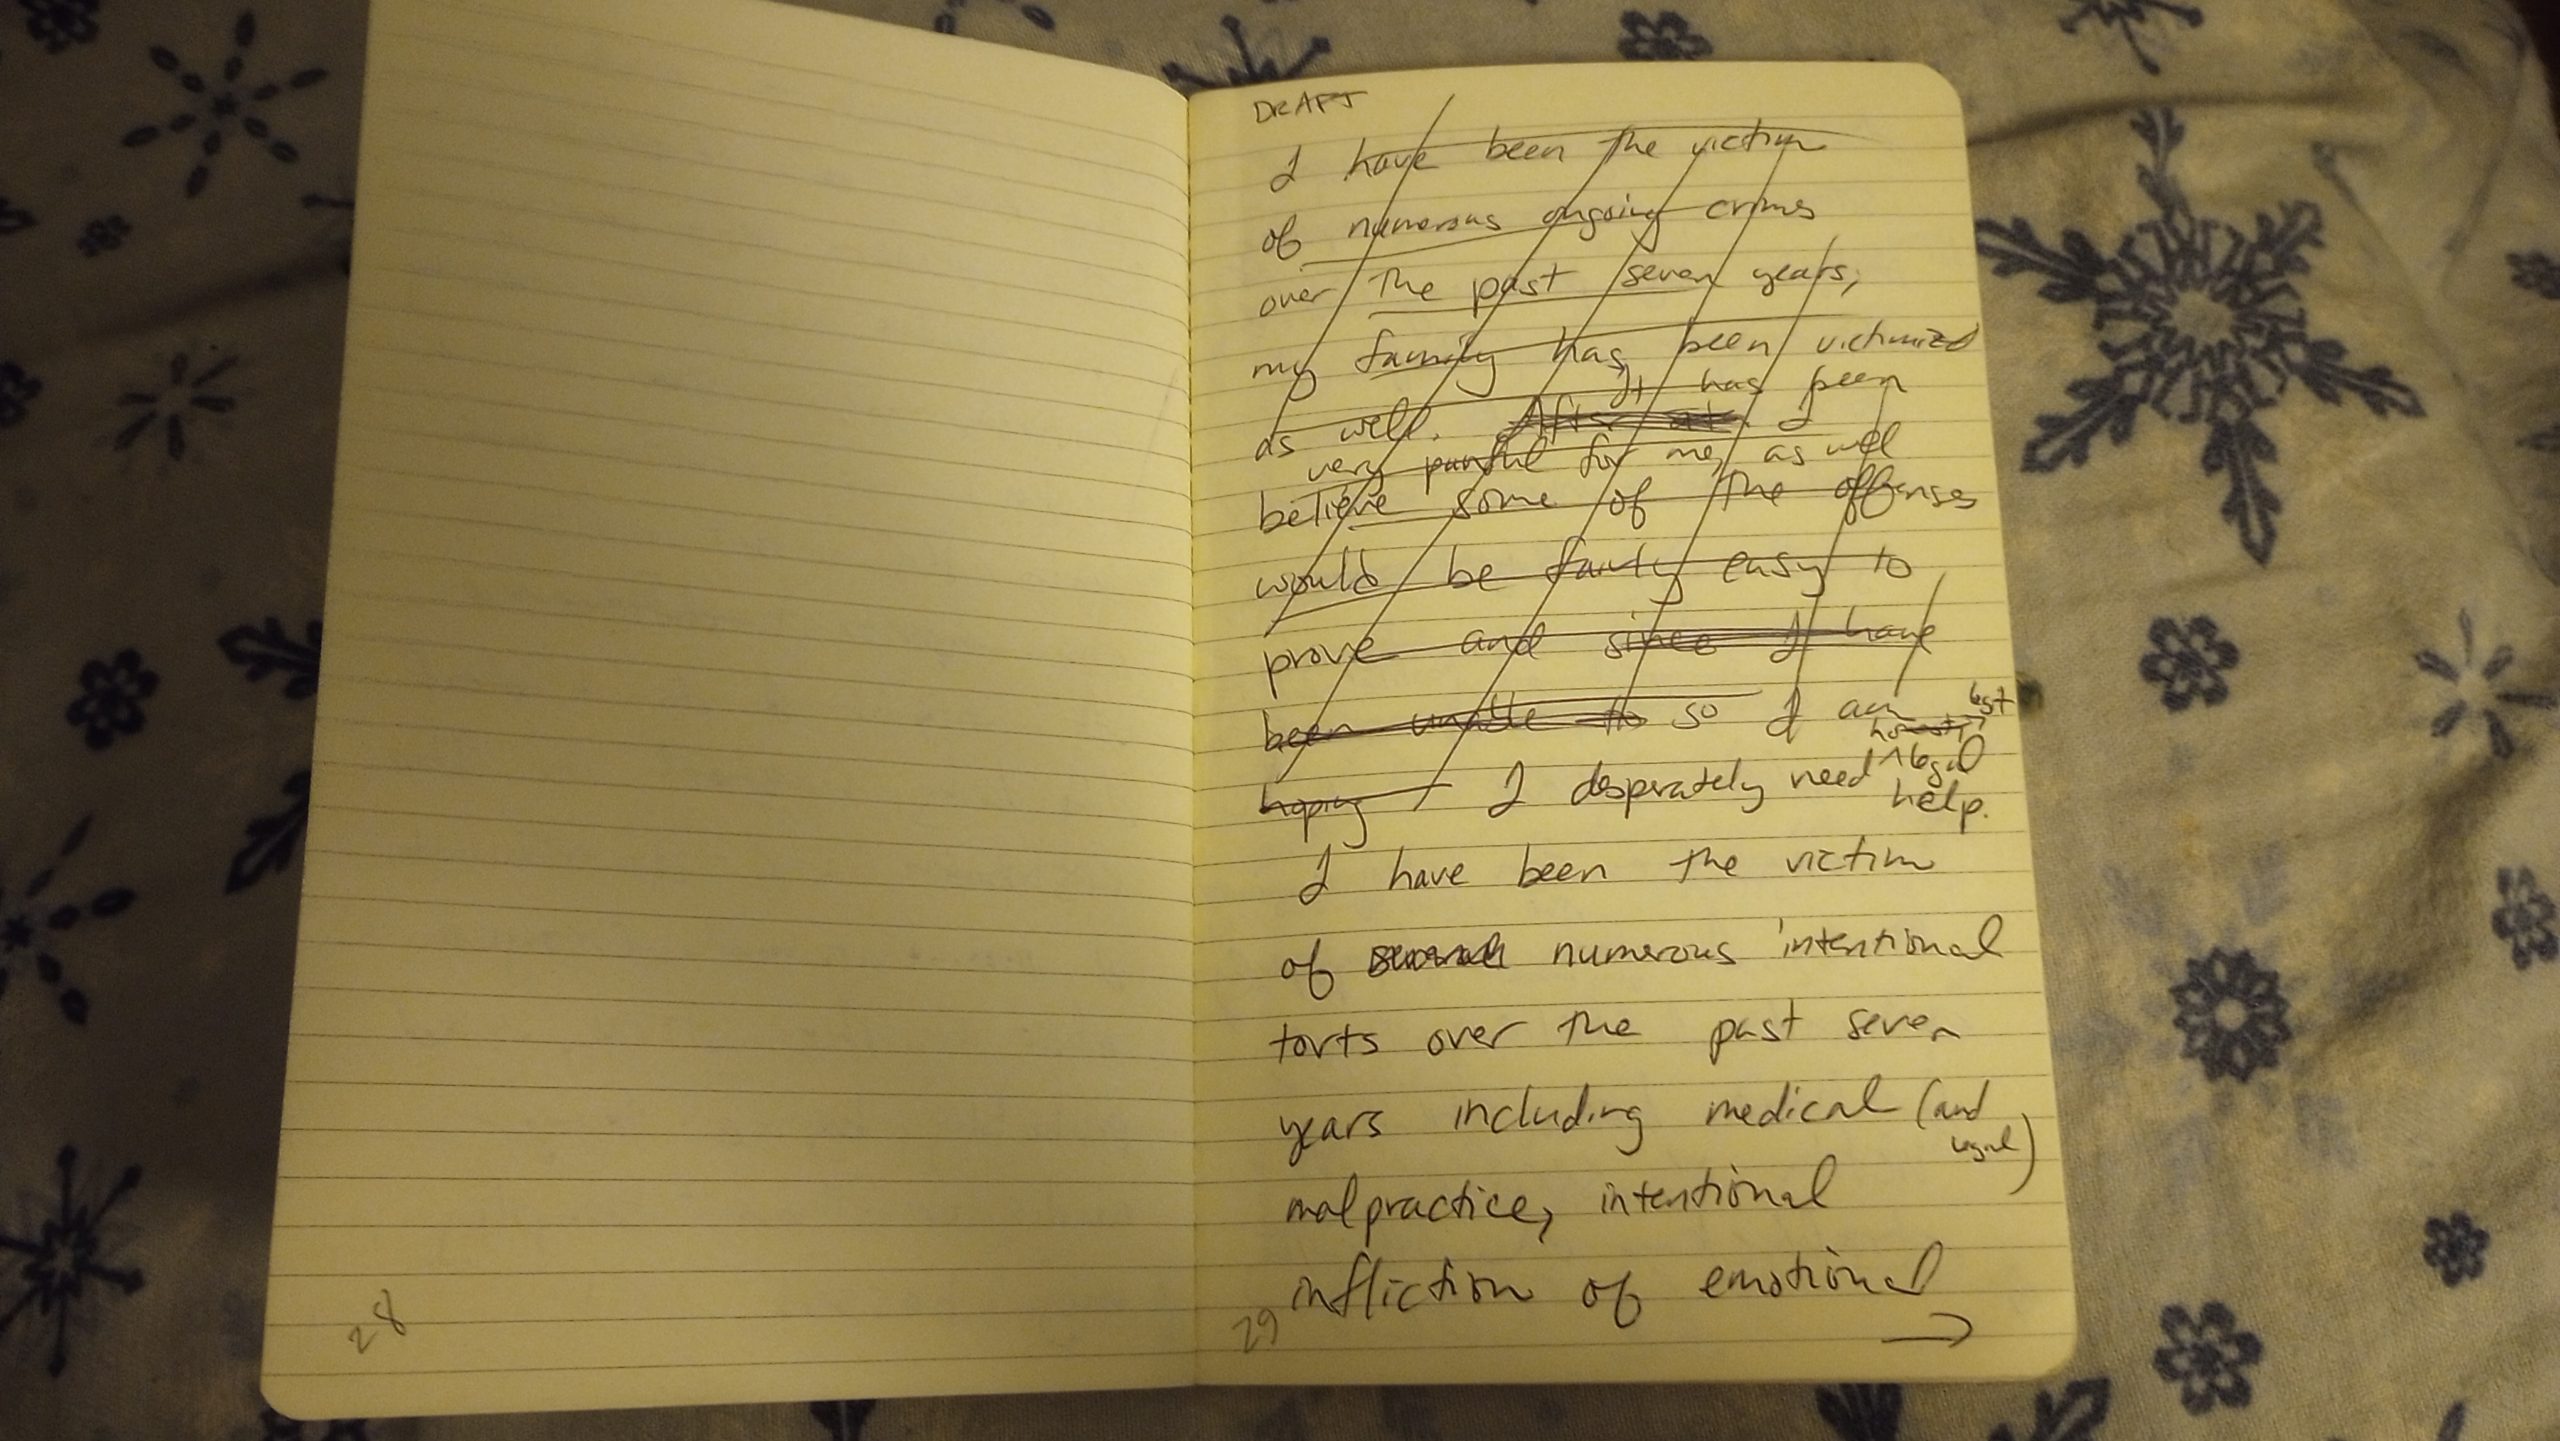 DRAFT
I have been the victim
of numerous ongoing crimes
over the past seven years,
my family has been victimized
It has been
as well. I
very painful for me, as well
believe some of the offenses
would be fairly easy to
prove and since I have
been unable to so I am
hoping I desperately need legal
help.
I have been the victim
of numerous intentional
torts over the past seven
years including medical (and
legal)
malpractice, intentional
infliction of emotional
→
28
29